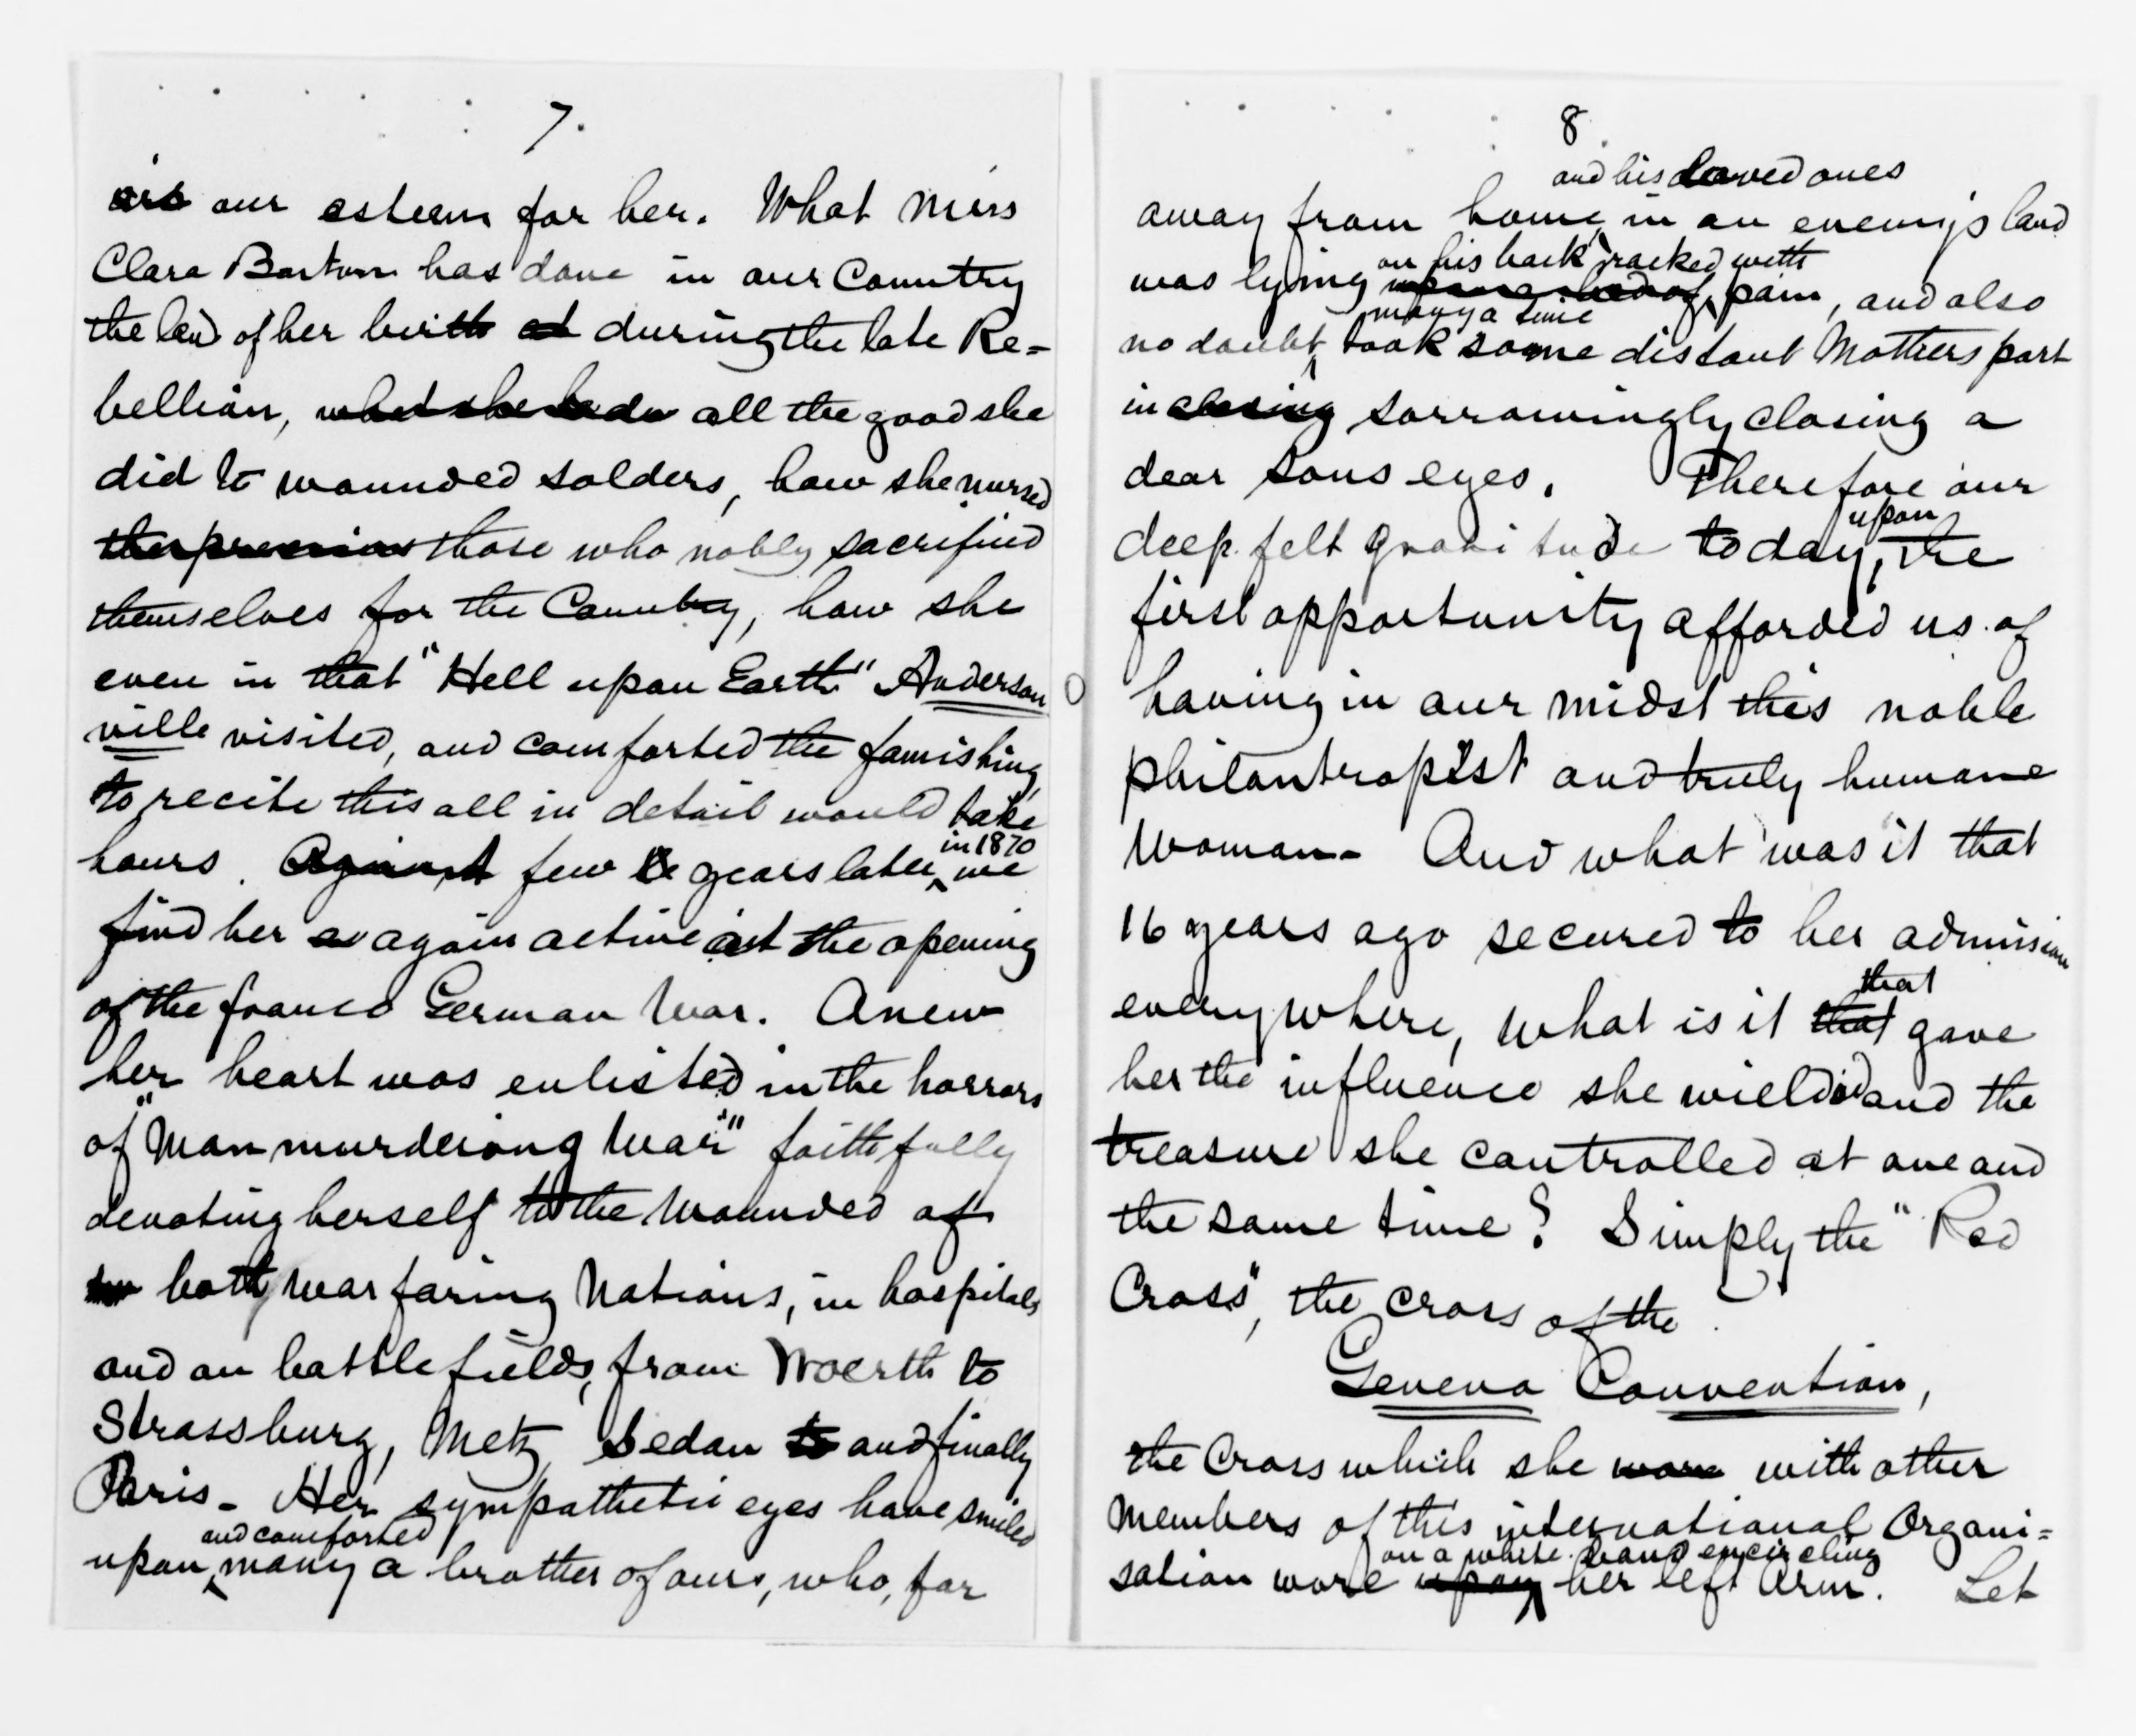 7.
is our esteem for her. What Miss
Clara Barton has done in our Country
the land of her birth at during the late Re=
bellion, what she had do all the good she
did to wounded solders, how she nursed
the precious those who nobly sacrificed
themselves for the Country, how she
even in that "Hell upon Earth" Anderson
ville visited, and comforted the famishing,
to recite this all in detail would take
in 1870
hours. Again A few ye years later, we
find her as again active at the opening
of the franco German War. Anew
her heart was enlisted in the horrors
of "Man murdering War" faithfully
devoting herself to the Wounded of
both warfaring Nations, in hospitals
and on battlefields, from Woerth to
Strassburg, Metz, Sedan to and finally
Paris - Her sympathetic eyes have smiled
and comforted
upon many a brother of ours, who, far
8.
and his loved ones
away from home, in an enemy's land
on his back racked with
was lying upon a bed of pain, and also
many a time
no doubt, took some distant Mothers part
in closing sorrowingly closing a
dear sons eyes. Therefore our
upon
deep felt gratitude today, the
first opportunity afforded us of
having in our midst this noble
philantropist and truly humane
Woman - And what was it that
16 years ago secured to her admission
that
everywhere, what is it that gave
her the influence she wielded and the
treasure she controlled at one and
the same time? Simply the "Red
Cross", the cross of the
Geneva Convention,
the Cross which she wore with other
Members of this international Organi=
on a white band encircling
sation wore upon her left Arm. Let